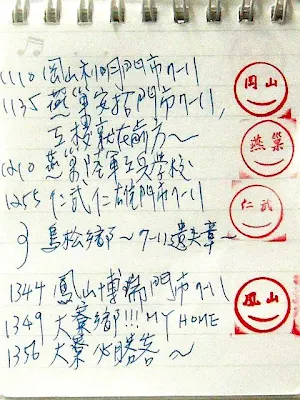 1110 岡山利明門市7-11
1135 燕巢安招門市7-11,
就在前方~
1210 燕巢陸軍工兵學校
1255 仁武仁雄門市7-11
鳥松鄉~7-11遺失章~
1344 鳳山博瑞門市7-11
1349 大寮鄉!!! MY HOME
1356 大寮必勝客~
岡山
燕巢
仁武
鳳山